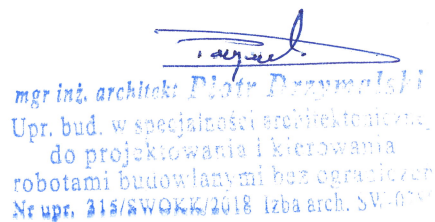 mgr inż. architekt Piotr Drzymalski
Upr. bud. w specjalności architektonicznej
do projektowania i kierowania
robotami budowlanymi bez ograniczeń
Nr upr. 315/SWOKK/2018 Izba arch.